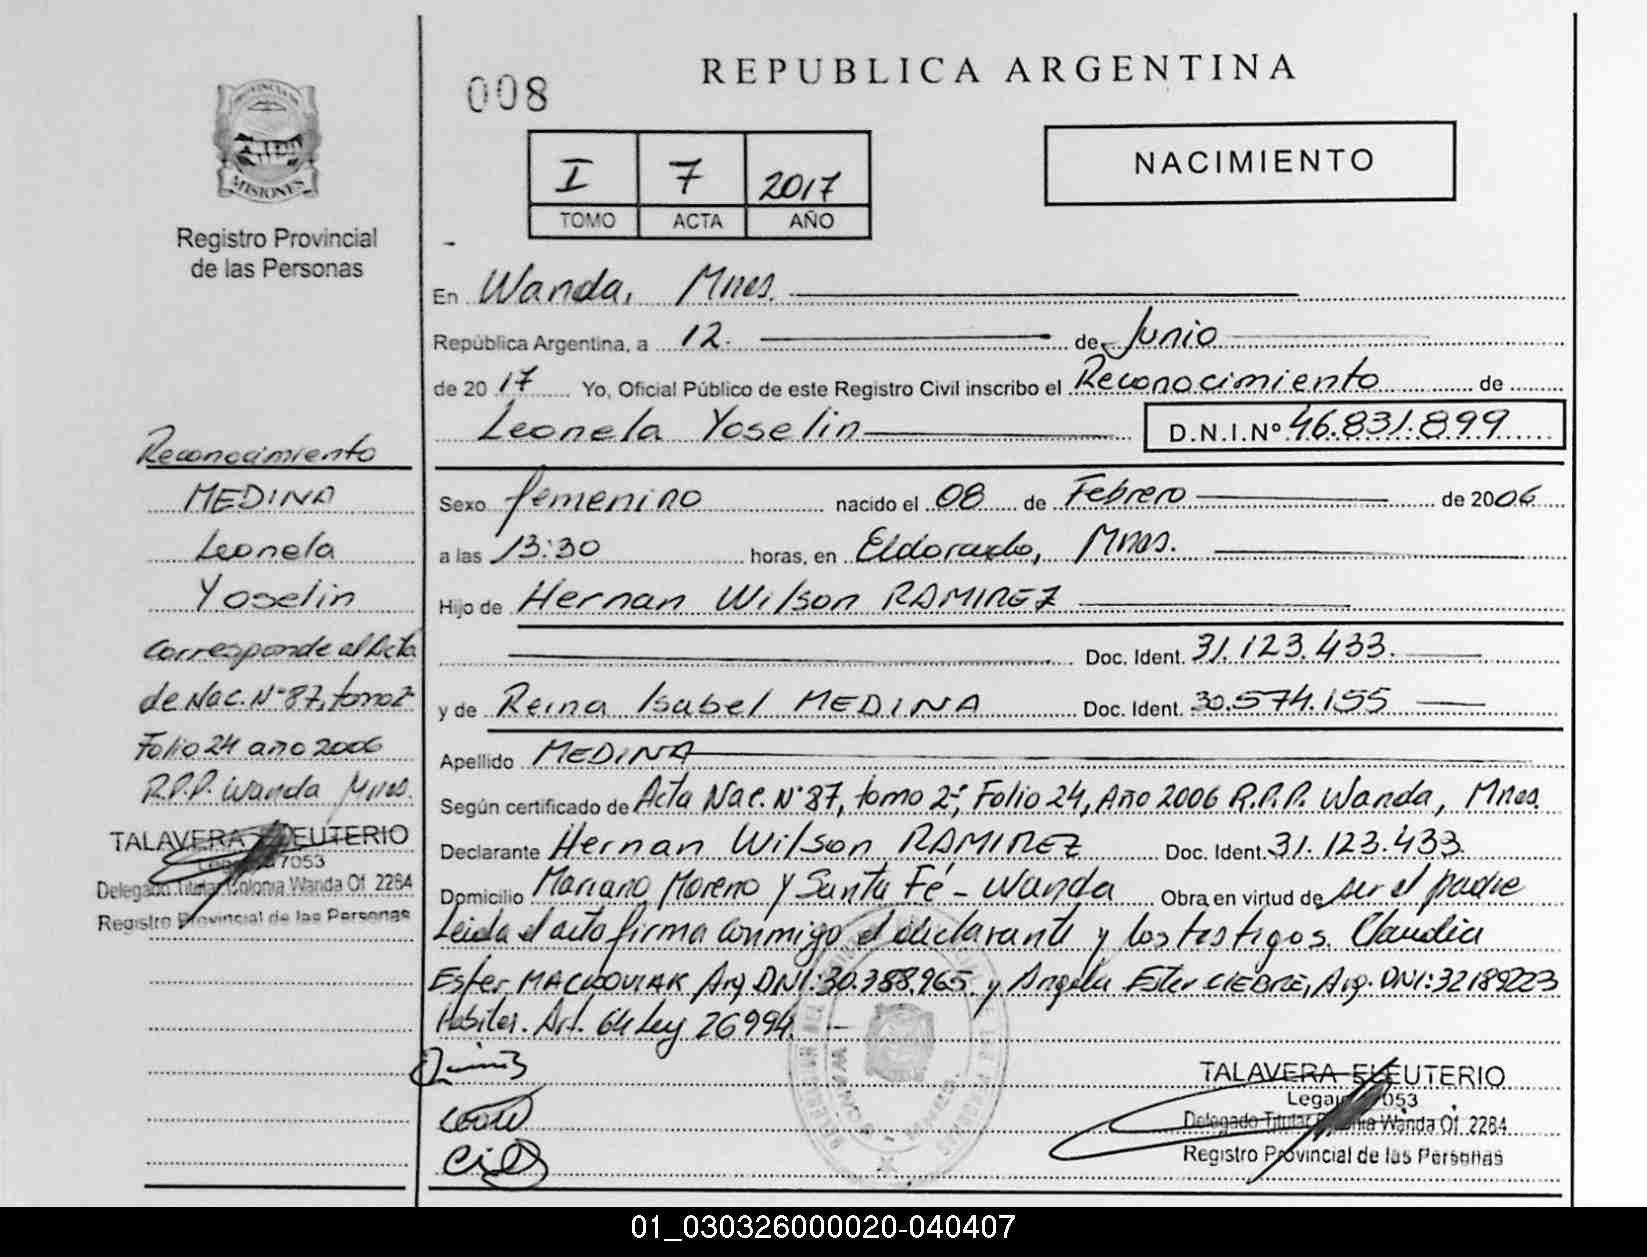 REPUBLICA ARGENTINA
008
I 7 2017
TOMO ACTA AÑO
NACIMIENTO
MISIONES
Registro Provincial
de las Personas
En Wanda, Mnes.
República Argentina, a 12. de Junio
de 2017 Yo, Oficial Público de este Registro Civil inscribo el Reconocimiento de
Leonela Yoselin D.N.I.Nº 46.831.899
Sexo femenino nacido el 08 de Febrero de 2006
a las 13:30 horas, en Eldorado, Mnes.
Hijo de Hernan Wilson RAMIREZ
Doc. Ident. 31.123.433.
y de Reina Isabel MEDINA Doc. Ident. 30.574.155
Apellido MEDINA
Según certificado de Acta Nac. Nº 87, tomo 2º, Folio 24, Año 2006 R.P.P. Wanda, Mnes.
Declarante Hernan Wilson RAMIREZ Doc. Ident. 31.123.433.
Domicilio Mariano Moreno y Santa Fé - Wanda Obra en virtud de ser el padre
Leida el acta firma conmigo el declarante y los testigos Claudia
Ester Arg DNI: 30.388.965. y Angela Ester Arg. DNI: 32189223
Habiles. Art. 64 Ley 26994.
Reconocimiento
MEDINA
Leonela
Yoselin
Corresponde al Acta
de Nac. Nº 87, tomo 2º
Folio 24 año 2006
R.P.P. Wanda Mnes.
TALAVERA ELEUTERIO
7053
Delegado Titular Colonia Wanda Of. 2284
Registro Provincial de las Personas
TALAVERA ELEUTERIO
Legajo 7053
Delegado Titular Colonia Wanda Of. 2284
Registro Provincial de las Personas
01_030326000020-040407